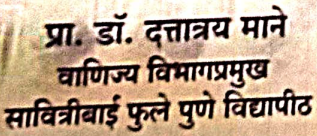 प्रा. डॉ. दत्तात्रय माने
वाणिज्य विभागप्रमुख
सावित्रीबाई फुले पुणे विद्यापीठ